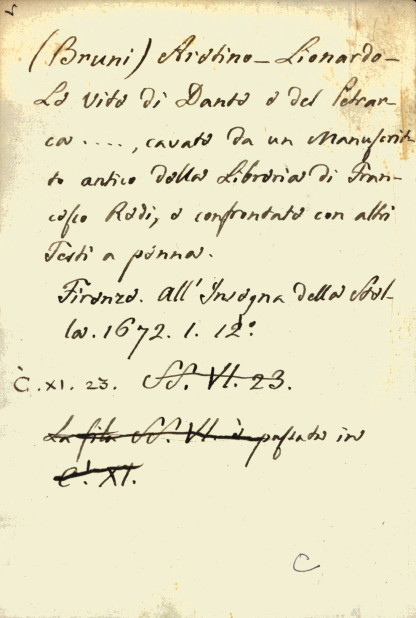 (Bruni) Aretino - Lionardo -
Le Vite di Dante e del Petrar-
ca ...., cavate da un Manuscrit-
to antico della Libreria di Fran-
cesco Redi, e confrontate con altri
Testi a penna.
Firenze. All'Insegna della Stel-
la. 1672. 1. 12°.
C. XI. 23. SS. VI. 23.
La fila SS. VI. è passata in
C. XI.
C